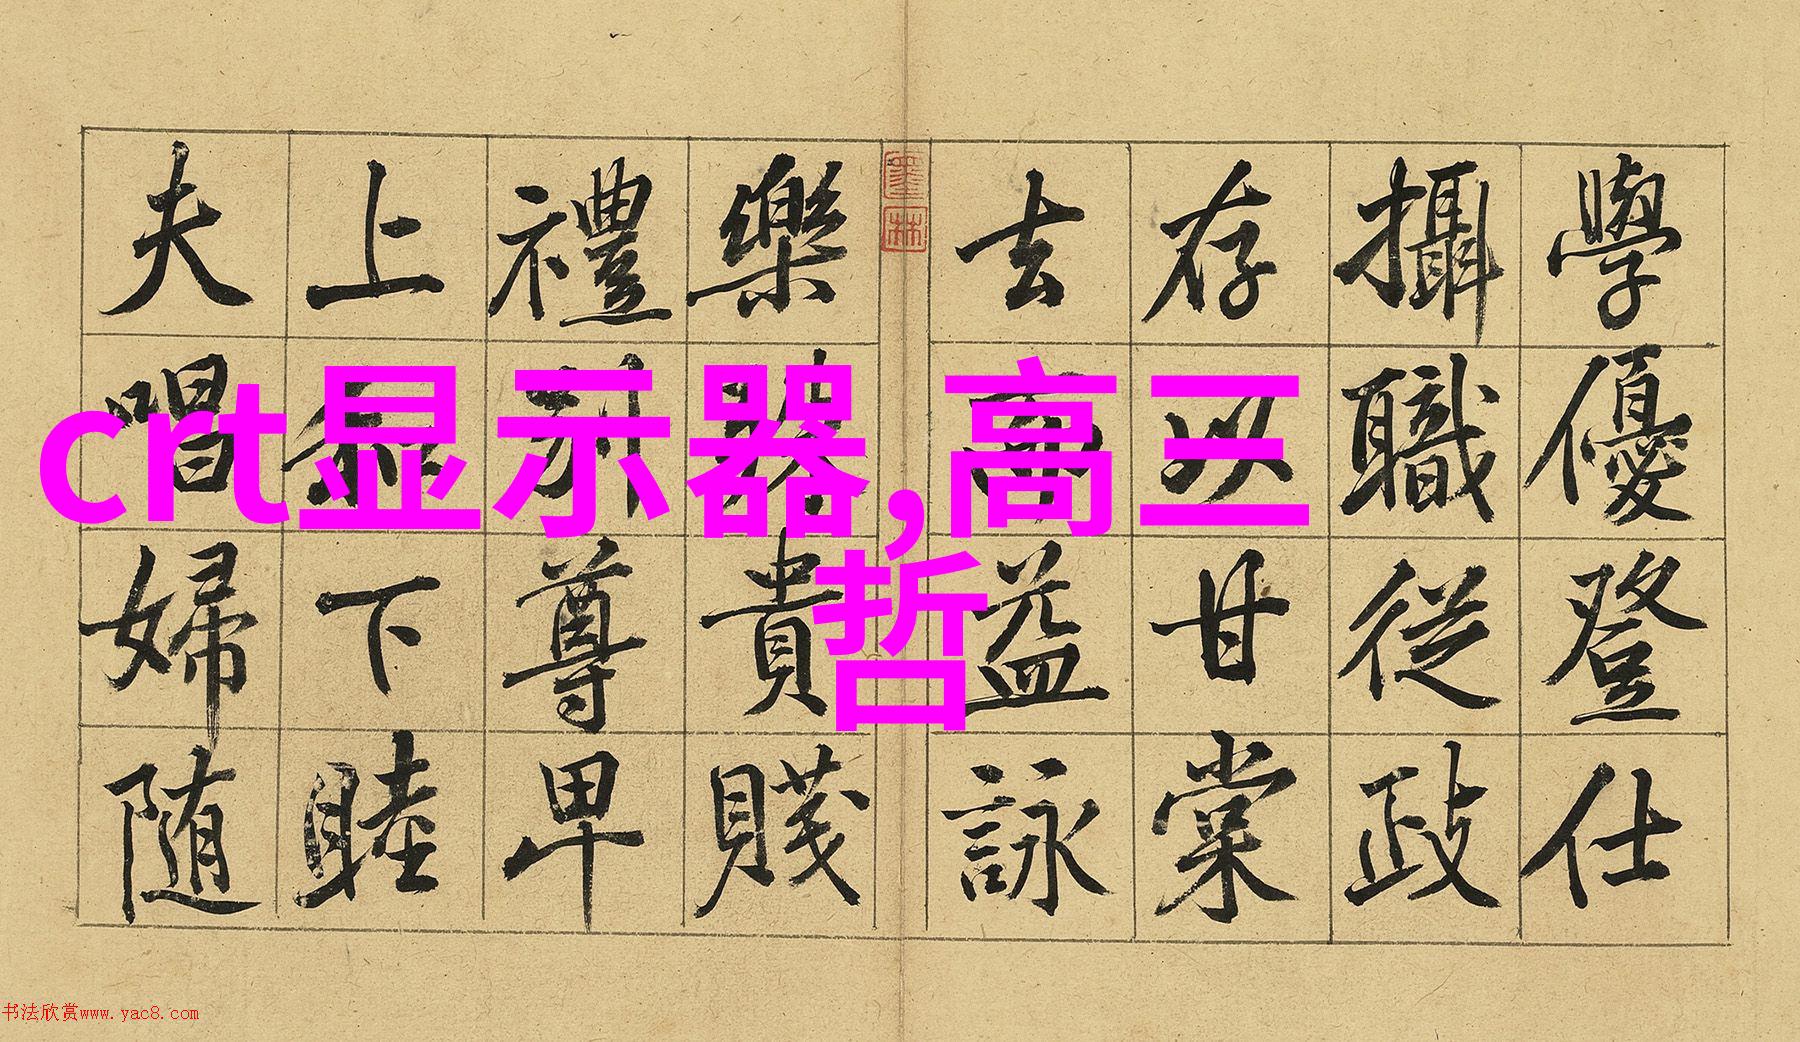 crt显示器,高三
哲
學優登仕
攝職從政
存以甘棠
去而益詠
墨林
樂殊貴賤
禮別尊卑
上和下睦
夫唱婦随
书法欣赏www.yac8.com